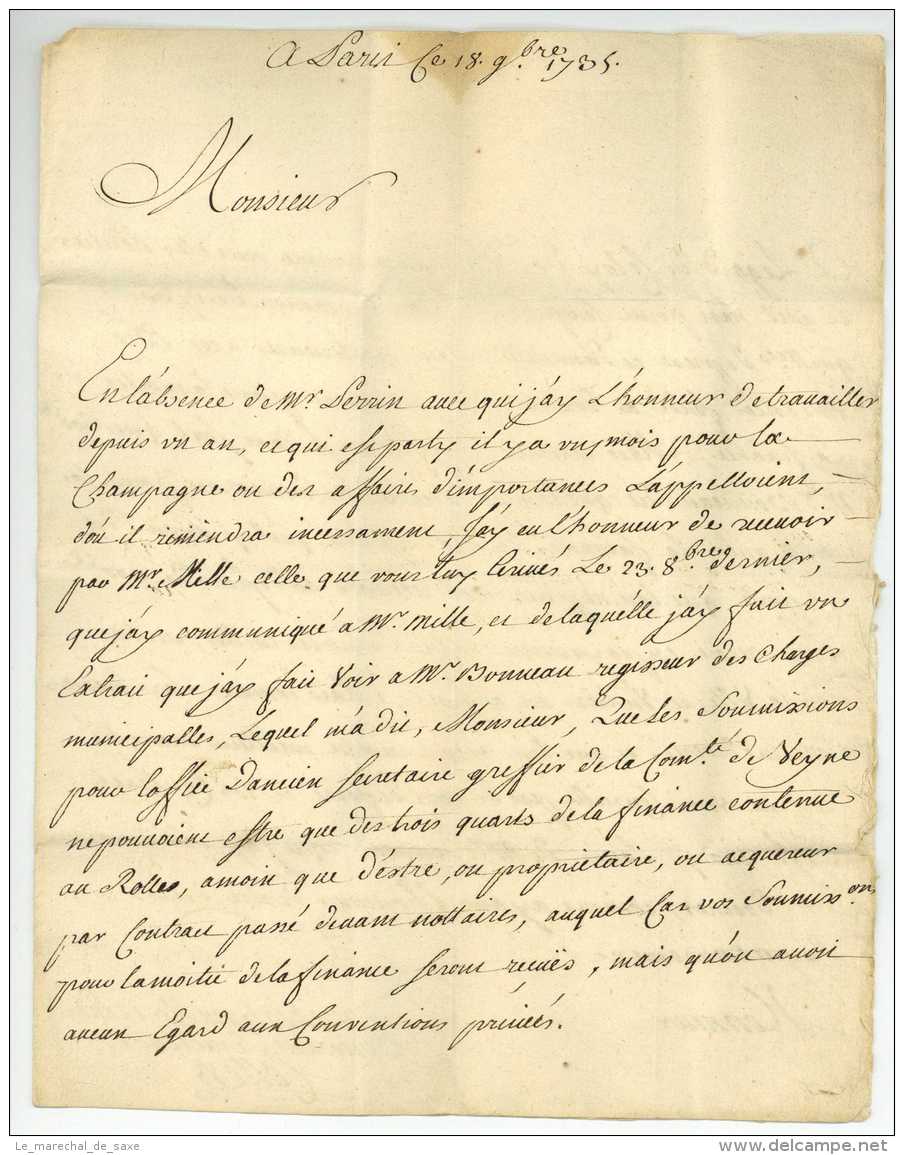 A Paris Ce 18. 9.bre 1735.
Monsieur
En l'absence de Mr. Perrin avec qui j'ay L'honneur de travailler
depuis un an, et qui est party il y a un mois pour La
Champagne ou des affaires d'importances L'appelloient,
d'ou il reviendra incessament, J'ay eu l'honneur de recevoir
par Mr. Mille celle que vous luy Ecrivés Le 23. 8.bre dernier,
que j'ay communiqué a Mr. Mille, et de laquélle j'ay fait un
Extrait que j'ay fait Voir a Mr. Bonneau regisseur des Charges
municipalles, Lequel m'a dit, Monsieur, Que Les Soumissions
pour l'office D'ancien Secretaire greffier de la Com.té de Veyne
ne pouvoient estre que des trois quarts de la finance contenue
au Rolles, a moin que d'éstre, ou proprietaire, ou acquereur
par Contract passé devant nottaires, auquel Cas vos Soumiss.on
pour la moitié de la finance Seront recuës, mais qu'on avoit
aucun Egard aux Conventions privéés.
Le_marechal_de_saxe
delcampe.net